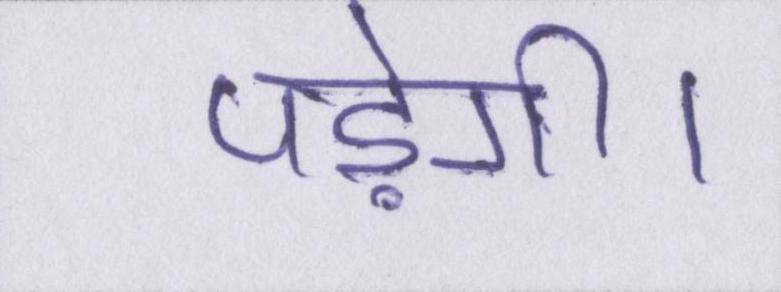 पड़ेगी।